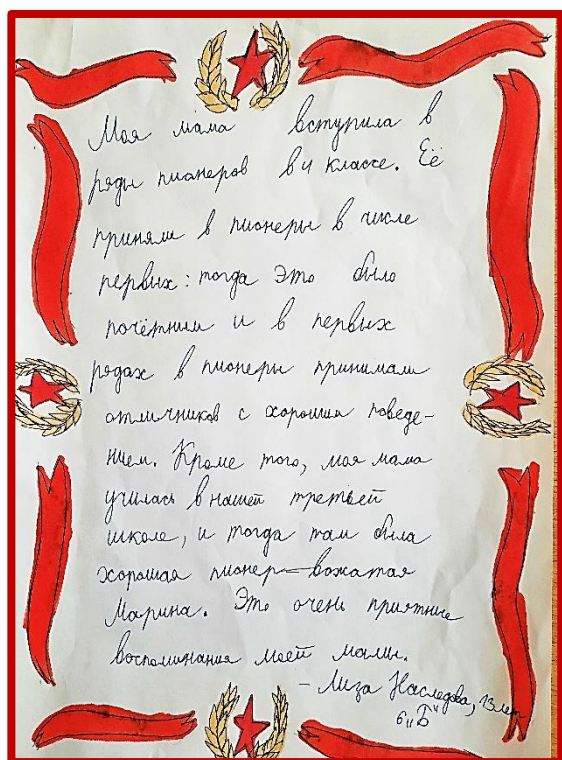 Моя мама вступила в
ряды пионеров в 4 классе. Её
приняли в пионеры в числе
первых: тогда это было
почётным и в первых
рядах в пионеры принимали
отличников с хорошим поведе-
нием. Кроме того, моя мама
училась в нашей третьей
школе, и тогда там была
хорошая пионер-вожатая
Марина. Это очень приятные
воспоминания моей мамы.
- Лиза Наследова, 13 лет
6 „Б"